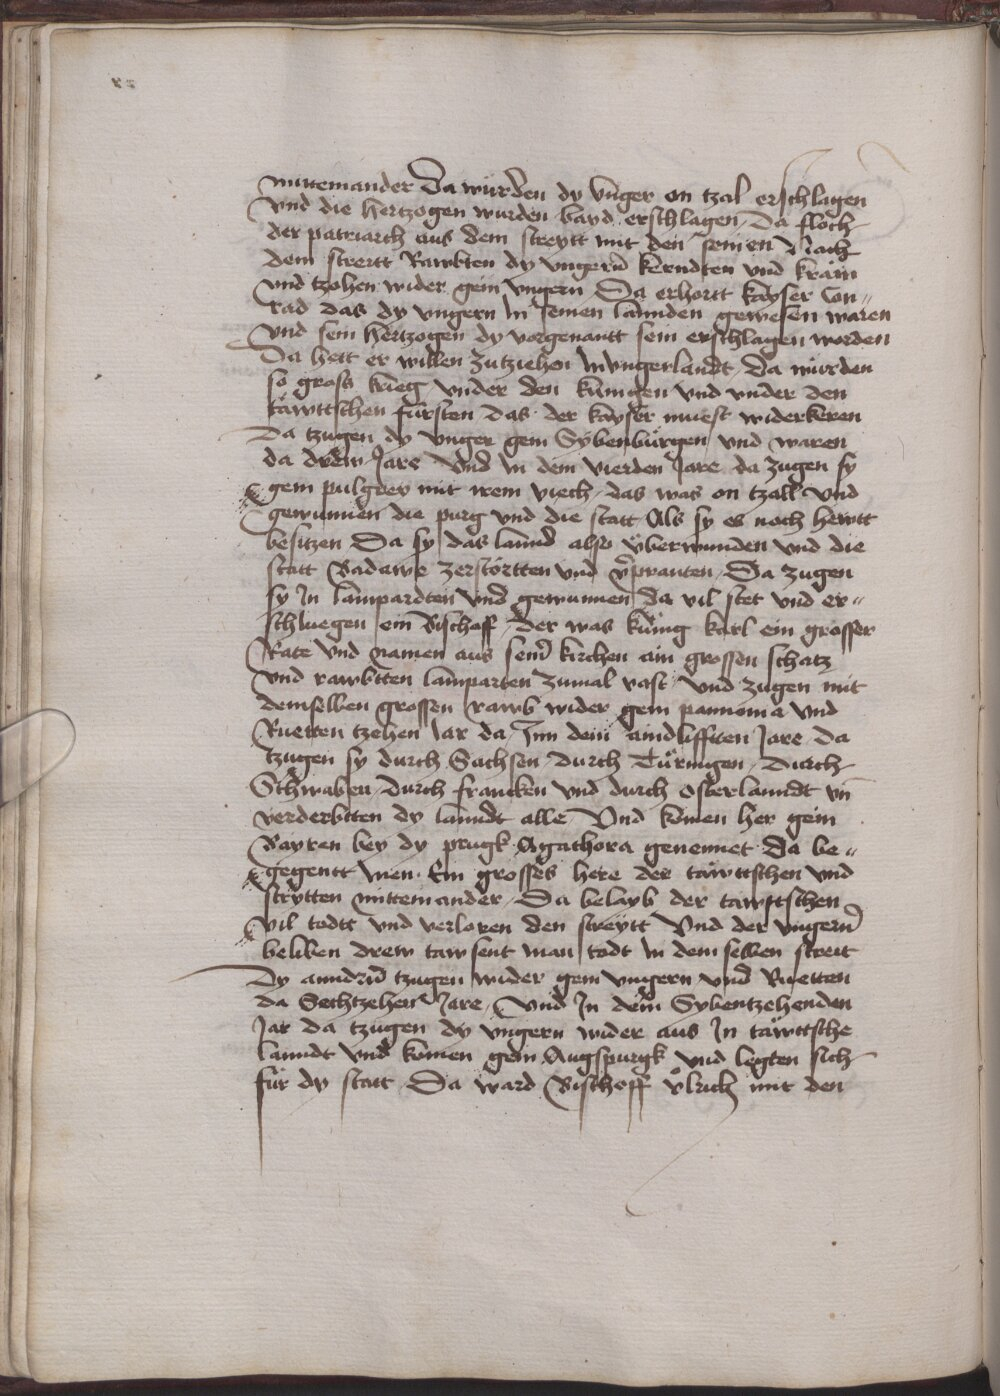 mitteinander Da würden dy Vnger on tzal erschlagen
Vnd die hertzogen wurden bayd erschlagen / Da floch
der patriarch aus dem streytt mit den seinen Nach
dem streitt Rawbten dy vngern̄ kerndten vnd krain
vnd tzohen wider gein vngern Da erhortt kayser Con„
rad das dy vngern In seinen lannden gewesen waren
Vnd sein hertzogen dy vorgenantt sein erschlagen worden
Da hett er willen zutziehen In vngerlandt / Da würden
so gross krieg vnder den künigen vnd vnder den
täwttschen fürsten das der kayser muest widerkeren
Da tzugen dy vnger gein Sybenbürgen vnd waren
da drew Jare Vnd In dem vierden Jare da zugen sy
gem pulgrey mit irem viech / das was on tzall Vnd
gewunnen die purg vnd die statt Als sy es noch hewtt
besitzen Da sy das lannd also überwunden vnd die
statt Badawe zerstörtten vnd v̄pranten / Da zugen
sy In lampardten Vnd gewunnen da vil stet vnd er„
schluegen ein Bischoff / der was küng karl ein grosser
Rate Vnd namen aus sein̄ kirchen ain grossen schatz
vnd rawbtten lamparten zumal vast / Vnd zugen mit
demselben grossen rawb wider gein pannonia Vnd
Ruetten tzehen Jar da Inn dem aindlifften Jare da
tzugen sy durch Sachsen / durch Türingen / Durch
Schwaben / durch francken vnd durch osterlanndt vn̄
verderbtten dy lanndt alle Vnd komen her gein
Bayren bey dy prugk Agathora genennet Da be„
gegentt Inen Ein grosses here der täwttschen Vnd
strytten mitteinander / Da belayb der tawttschen
vil todtt vnd verloren den streytt Vnd der vngern̄
beliben drew tawsent man todt In dem selben streit
Dy anndrn̄ tzugen wider gein vngern vnd Ruetten
da Sechtzehen Jare / Vnd In dem Sybentzehenden
Jar da tzugen dy vngern wider aus In täwttsche
lanndt Vnd komen gein Augspurgk vnd legten sich
für dy statt / Da ward Bischoff Vlrich mit den